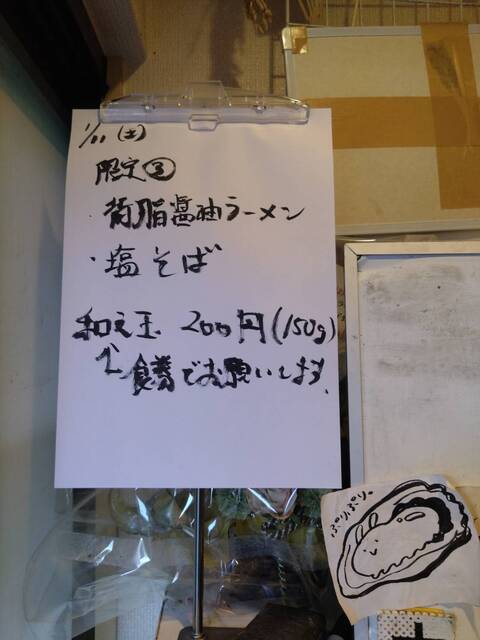 1/11 (土)
限定③
背脂醤油ラーメン
・塩そば
和え玉 200円(150g)
↑食券でお願いします。
ぷりぷり。